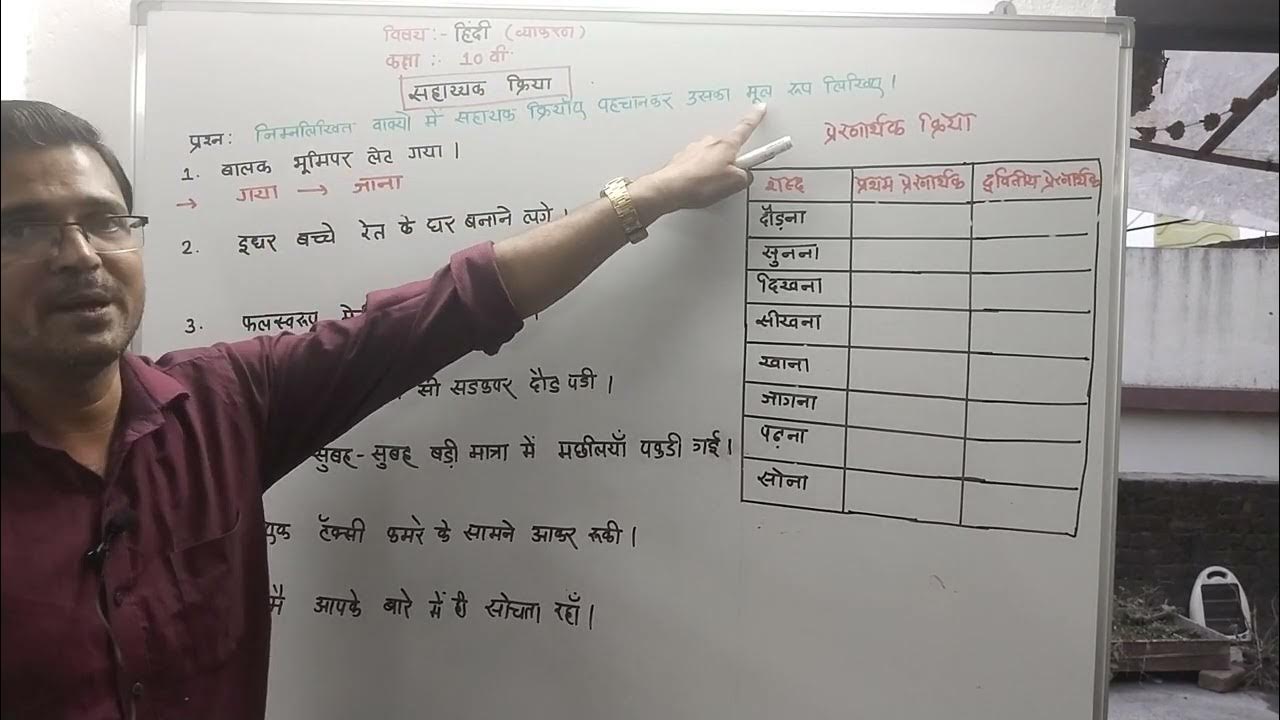 विषय :- हिंदी (व्याकरन)
कक्षा :- 10 वी.
सहाय्यक क्रिया
प्रश्न: निम्नलिखित वाक्यो में सहायक क्रियाँए पहचानकर उसका मूल रूप लिखिए।
1. बालक भूमिपर लेट गया।
→ गया → जाना
2. इधर बच्चे रेत के घर बनाने लगे।
3. फलस्वरूप
सी सडकपर दौड पडी।
सुबह-सुबह बड़ी मात्रा में मछीलयाँ पकडी गई।
एक टॅक्सी कमरे के सामने आकर रूकी।
मै आपके बारे में ही सोचता रहाँ।
प्रेरनार्थक क्रिया
शब्द प्रथम प्रेरनार्थक द्वितीय प्रेरनार्थक
दौड़ना
सुनना
दिखना
सीखना
खाना
जागना
पढ़ना
सोना